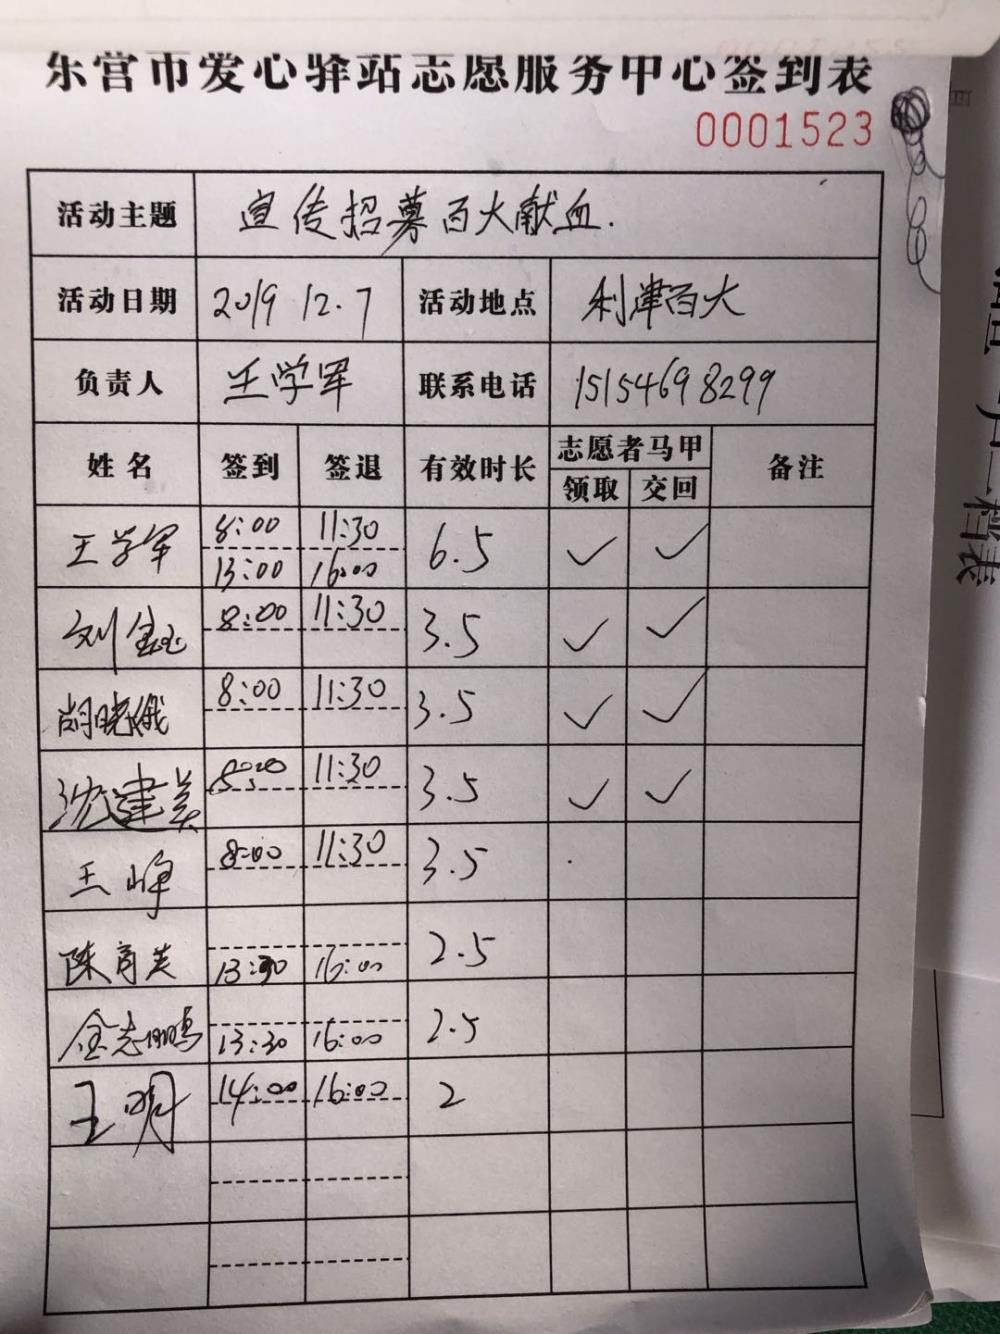 东营市爱心驿站志愿服务中心签到表
0001523
活动主题 宣传招募百大献血.
活动日期 2019 12.7 活动地点 利津百大
负责人 王学军 联系电话 15154698299
姓名 签到 签退 有效时长 志愿者马甲 备注
领取 交回
王学军 8:00 11:30 6.5 ✓ ✓
13:00 16:00
刘 8:00 11:30 3.5 ✓ ✓
胡晓娥 8:00 11:30 3.5 ✓ ✓
沈建美 11:30 3.5 ✓ ✓
王峥 8:00 11:30 3.5
陈育芙 13:30 16:00 2.5
金志鹏 13:30 16:00 2.5
王明 14:00 16:00 2
档表